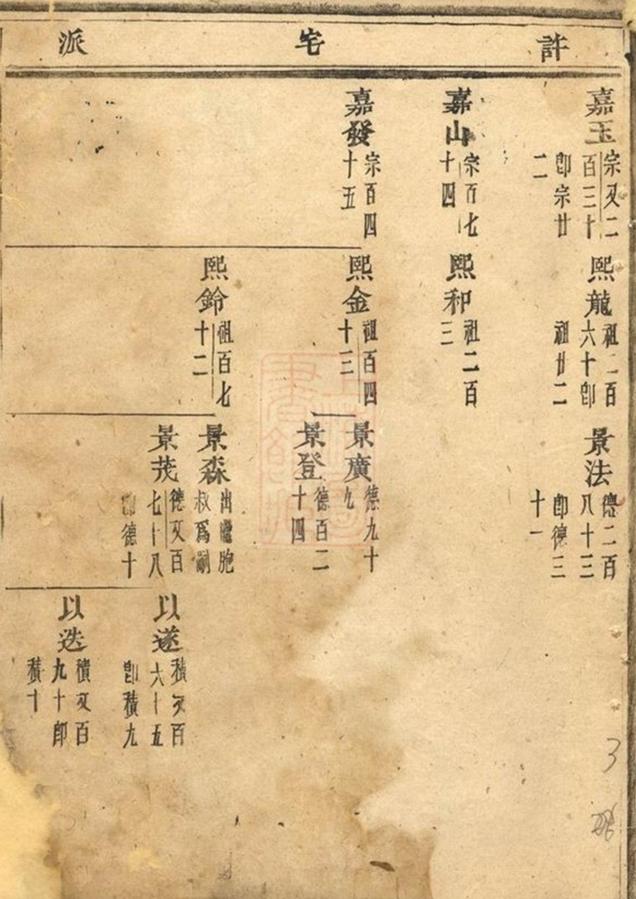 許宅派
嘉玉
宗又二
百三十
即宗廿
二
嘉山
宗百七
十四
嘉發
宗百四
十五
熙龍
祖二百
六十即
祖廿二
熙和
祖二百
三
熙金
祖百四
十三
熙鈴
祖百七
十二
景法
德二百
八十三
即德三
十一
景廣
德九十
九
景登
德百二
十四
景森
出繼胞
叔為嗣
景茂
德又百
七十八
即德十
以遂
積又百
六十五
即積九
以迭
積又百
九十即
積十
3